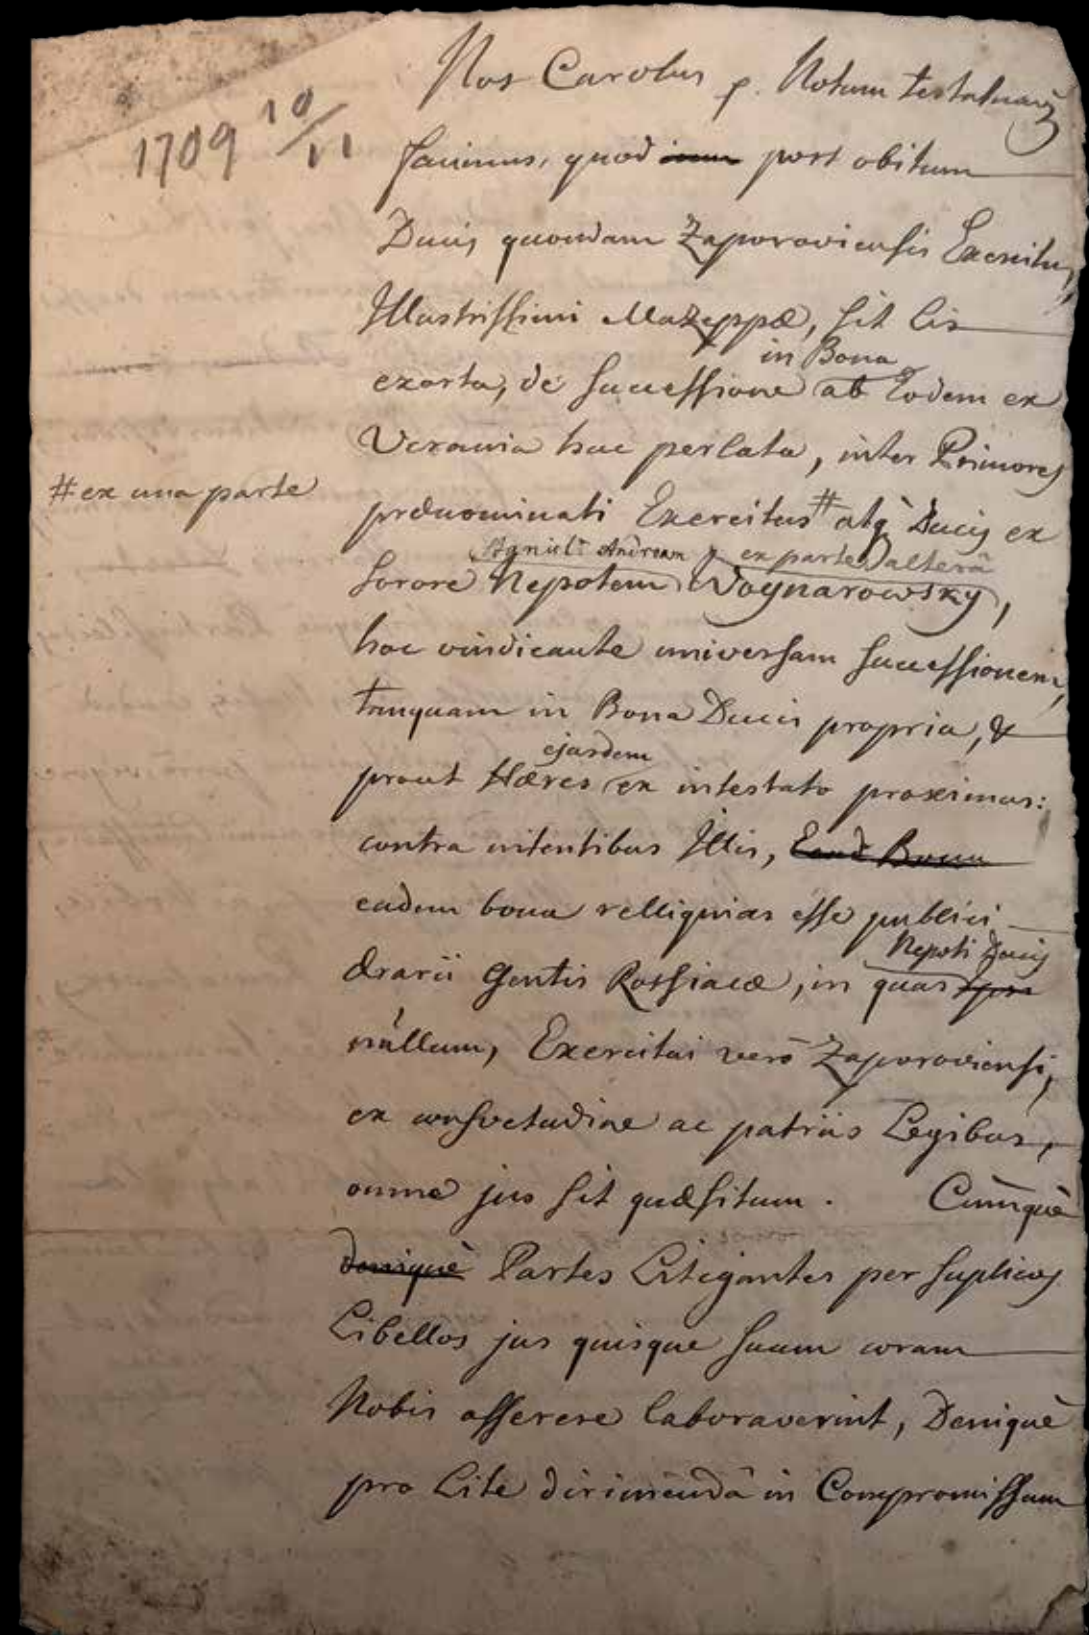 Nos Carolus p. Notum testatumq3
1709 10/11
facimus, quod post obitum
Ducis quondam Zaporoviensis Exercitus,
Illustrissimi Mazeppæ, sit lis
in Bona
exorta, de successione ab Eodem ex
Ucrania huc perlata, inter Primores
# ex una parte
prænominati Exercitus # atq Ducis ex
Andream & ex parte alterâ
sorore Nepotem Woynarowsky,
hoc vindicante universam successionem,
tanquam in Bona Ducis propria, &
ejusdem
prout Hæres ex intestato proximus:
contra nitentibus Illis, Bona
eadem bona relliquias esse publici
Nepoti Ducis
ærarii Gentis Rossiacæ, in quas
nullum, Exercitui verò Zaporoviensi,
ex consvetudine ac patriis Legibus,
omne jus sit quæsitum. Cùmque
deniquè Partes Litigantes per suplices
Libellos jus quisque suum coram
Nobis asserere laboraverint, Deniquè
pro Lite dirimendâ in Compromissum